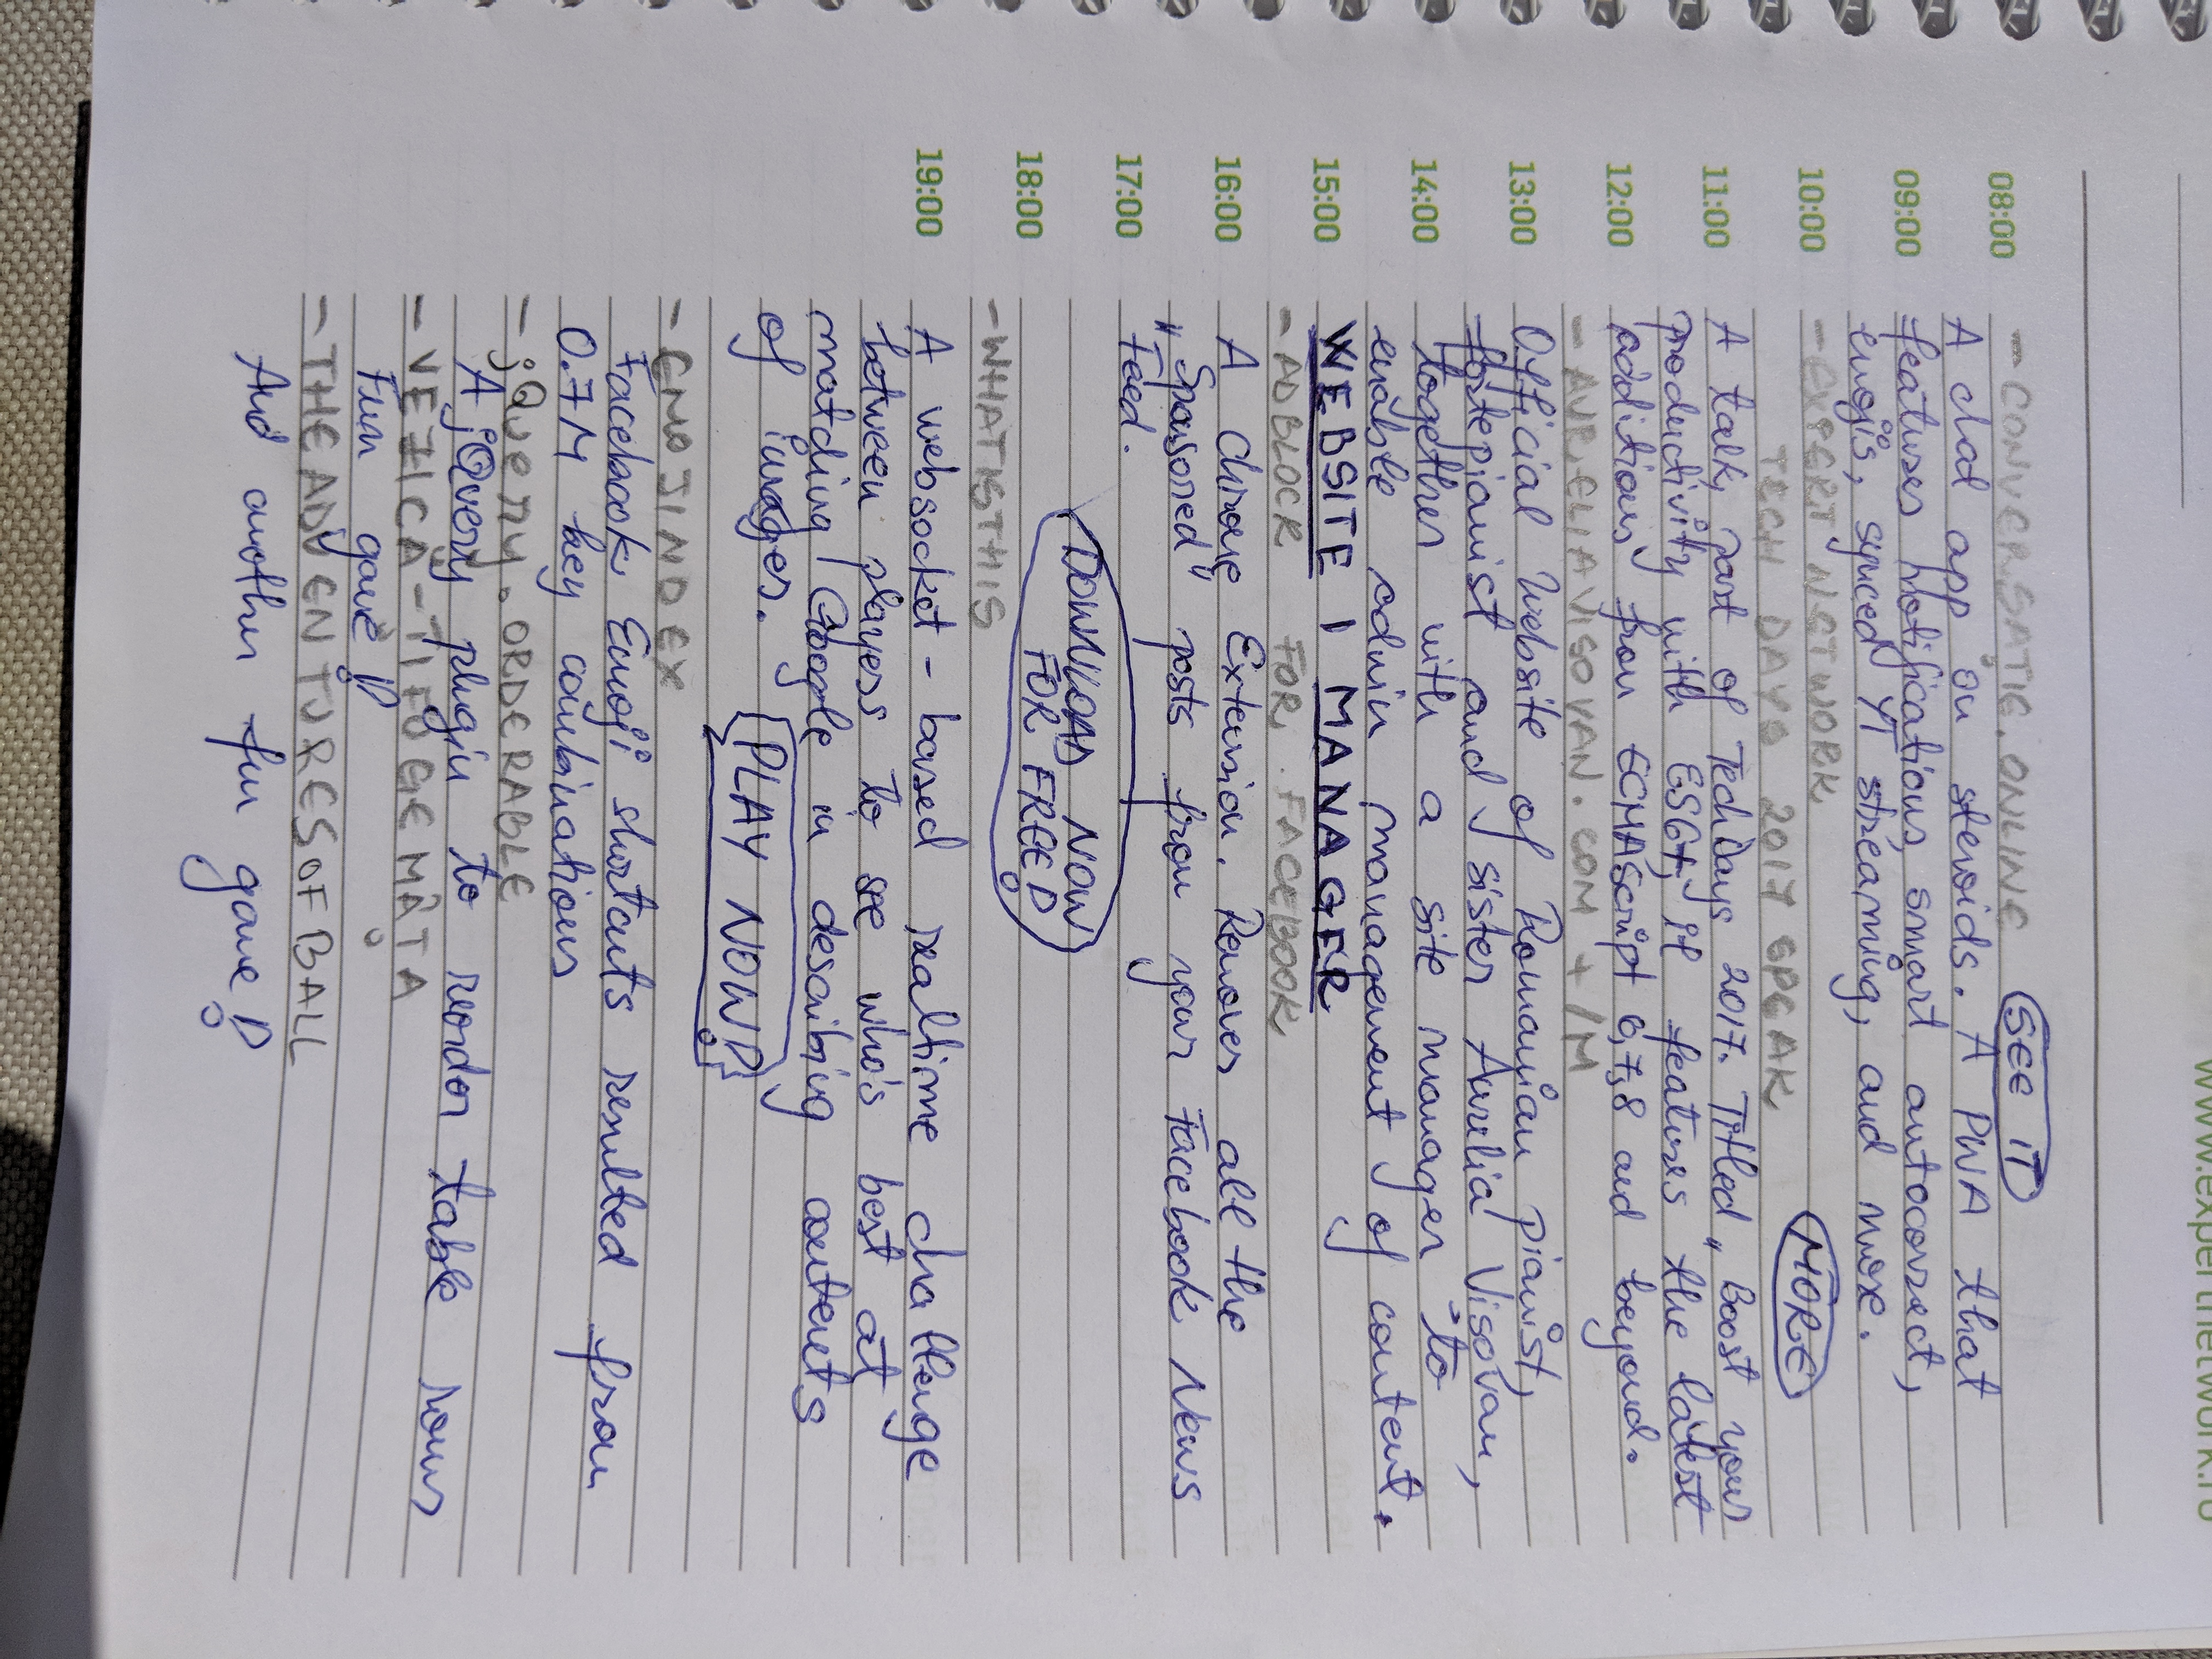 www.expertnetwork.ro
08:00 - CONVERSAȚIE.ONLINE SEE IT
A chat app on steroids. A PWA that
09:00 features notifications, smart autocorrect,
emojis, synced YT streaming, and more.
10:00 - EXPERT NETWORK MORE
TECH DAYS 2017 SPEAK
11:00 A talk, part of TechDays 2017. Titled „Boost your
productivity with ES6+, it features the latest
12:00 additions from ECMAScript 6,7,8 and beyond.
- AURELIAVISOVAN.COM + /M
13:00 Official Website of Romanian pianist,
fortepianist and sister Aurelia Vișovan,
14:00 together with a site manager to
enable admin management of content.
15:00 WEBSITE | MANAGER
- ADBLOCK FOR FACEBOOK
16:00 A Chrome Extension. Removes all the
„Sponsored" posts from your Facebook News
17:00 Feed.
DOWNLOAD NOW
18:00 FOR FREE!
- WHATISTHIS
19:00 A websocket-based realtime challenge
between players to see who's best at
matching Google in describing contents
of images. PLAY NOW!
- EMOJINDEX
Facebook Emoji shortcuts resulted from
0.7M key combinations
- jQuery.ORDERABLE
A jQuery plugin to reorder table rows
- VEZICĂ-ȚIFUGEMÂȚA
Fun game!
- THEADVENTURESOFBALL
And another fun game!